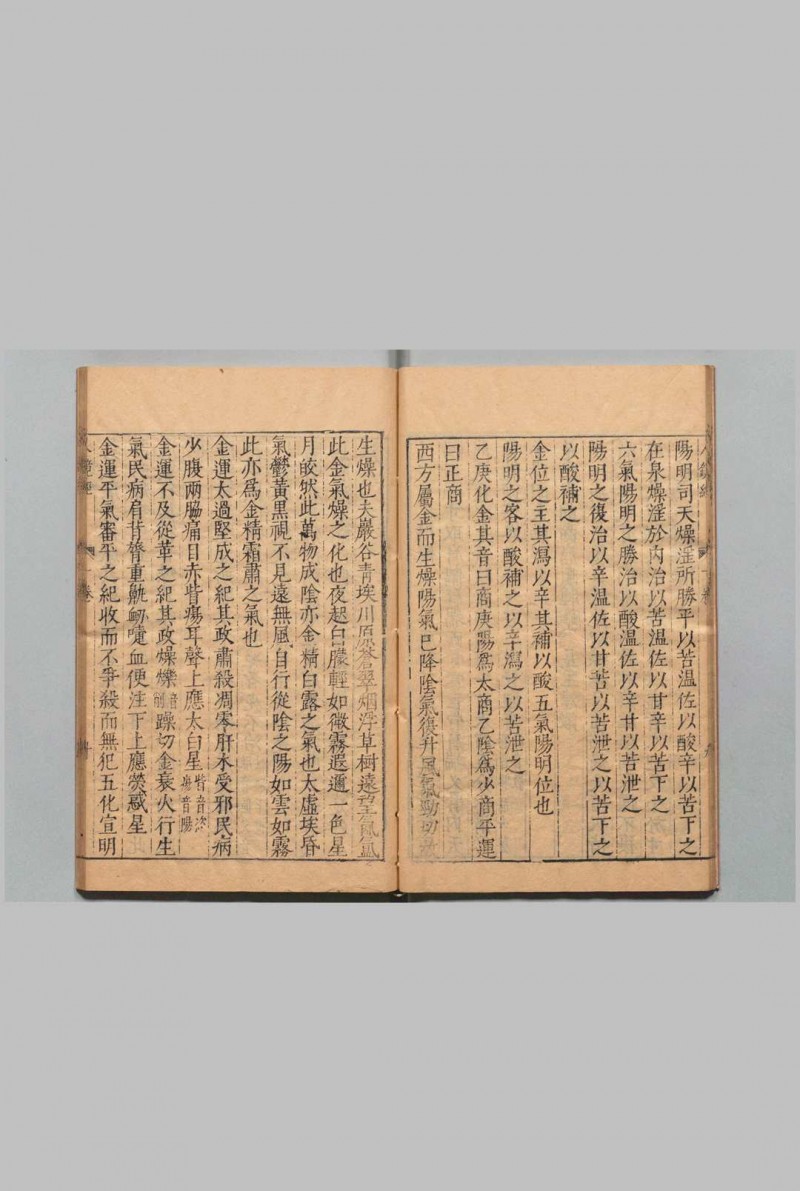 陽明司天燥淫所勝平以苦温佐以酸辛以苦下之
在泉燥淫於内治以苦温佐以甘辛以苦下之
六氣陽明之勝治以酸温佐以辛甘以苦泄之
陽明之復治以辛温佐以甘苦以苦泄之以苦下之
以酸補之
金位之主其瀉以辛其補以酸五氣陽明位也
陽明之客以酸補之以辛瀉之以苦泄之
乙庚化金其音曰商庚陽爲太商乙陰爲少商平運
曰正商
西方屬金而生燥陽氣已降陰氣復升風氣勁切
生燥也夫巖谷青埃川原蒼翠烟浮草樹遠望氤氳
此金氣燥之化也夜起白朦輕如微霧遐邇一色星
月皎然此萬物成陰亦金精白露之氣也太虛埃昏
氣鬱黃黑視不見遠無風自行從陰之陽如雲如霧
此亦爲金精霜肅之氣也
金運太過堅成之紀其政肅殺凋零肝木受邪民病
少腹兩脇痛目赤眥瘍耳聾上應太白星眥音次瘍音陽
金運不及從革之紀其政燥爍音躁切金衰火行生
氣民病肩背瞀重鼽衂嚏血便注下上應熒惑星
金運平氣審平之紀收而不爭殺而無犯五化宣明